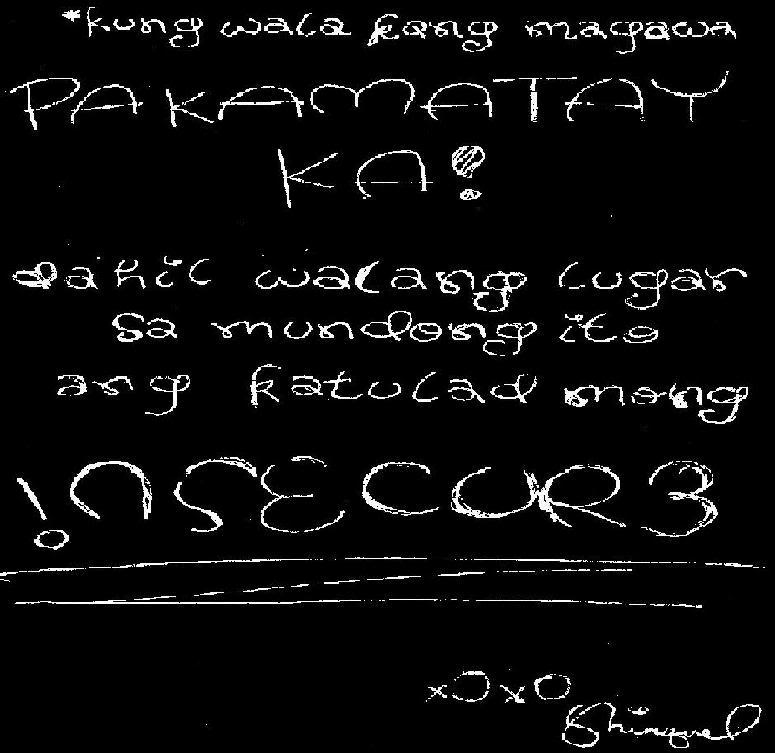 *kung wala kang magawa
PAKAMATAY
KA!
dahil walang lugar
sa mundong ito
ang katulad mong
!NSECUR3
xOxO